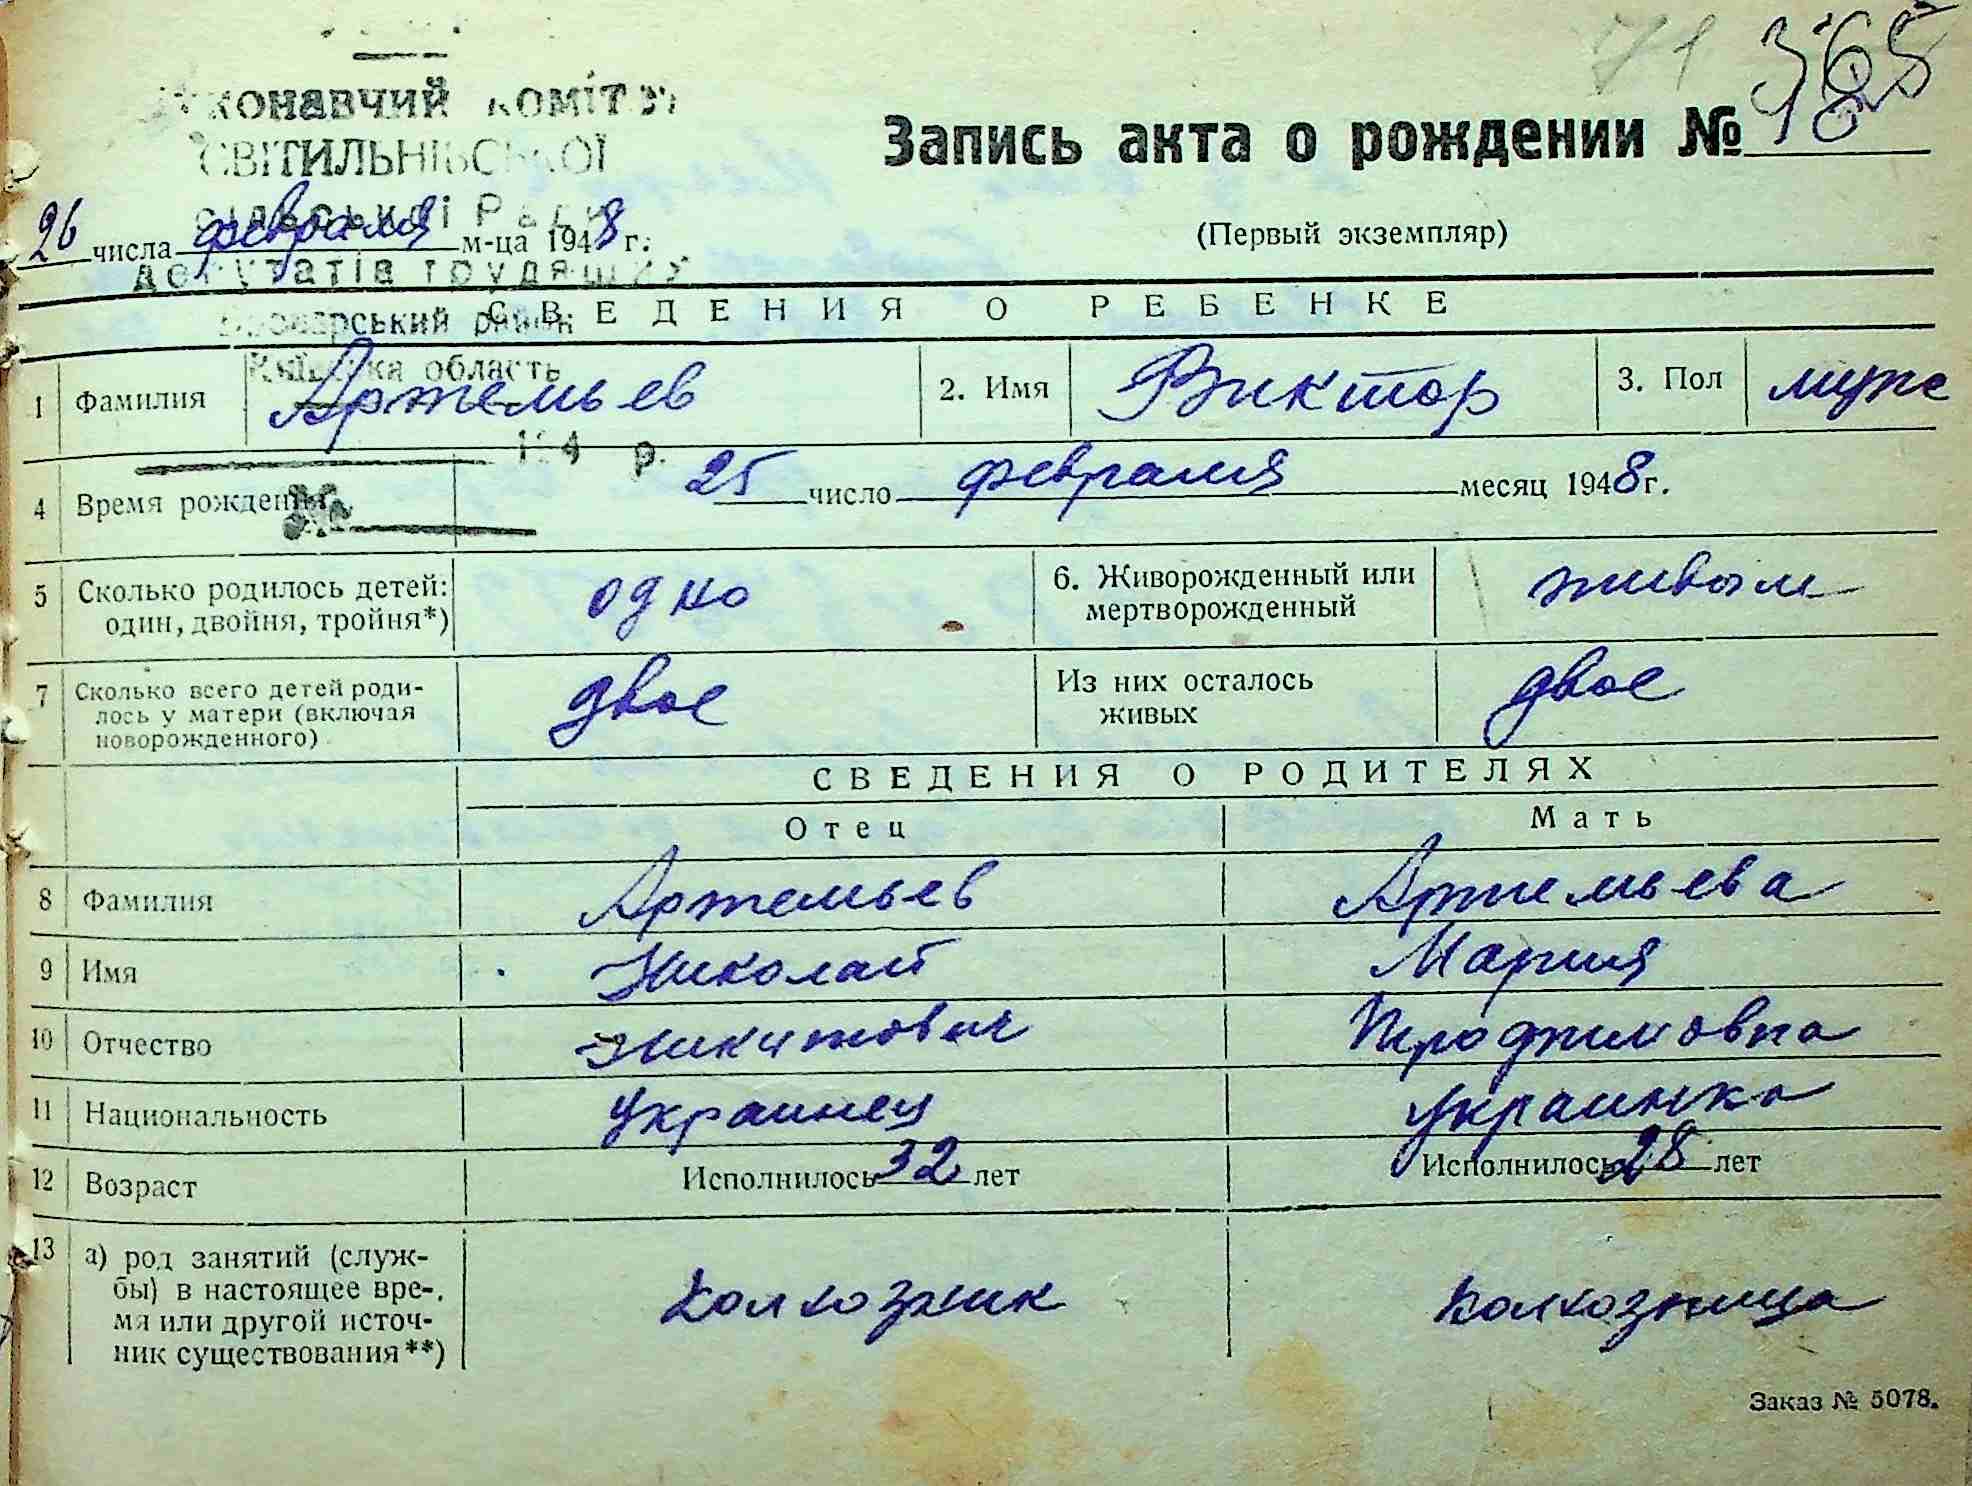 71 365
18
конавчий комітет
СВІТИЛЬНІВСЬКОЇ
сільської Ради
депутатів трудящих
Броварський район
Київська область
194 р.
№
Запись акта о рождении №
26 числа февраля м-ца 1948 г.
(Первый экземпляр)
СВЕДЕНИЯ О РЕБЕНКЕ
1 Фамилия Артемьев 2. Имя Виктор 3. Пол муж
4 Время рождения 25 число февраля месяц 1948 г.
5 Сколько родилось детей: один, двойня, тройня*) одно 6. Живорожденный или мертворожденный живым
7 Сколько всего детей роди-
лось у матери (включая
новорожденного) двое Из них осталось живых двое
СВЕДЕНИЯ О РОДИТЕЛЯХ
Отец Мать
8 Фамилия Артемьев Артемьева
9 Имя Николай Мария
10 Отчество Никитович Трофимовна
11 Национальность Украинец Украинка
12 Возраст Исполнилось 32 лет Исполнилось 28 лет
13 а) род занятий (служ-
бы) в настоящее вре-
мя или другой источ-
ник существования**) колхозник колхозница
Заказ № 5078.